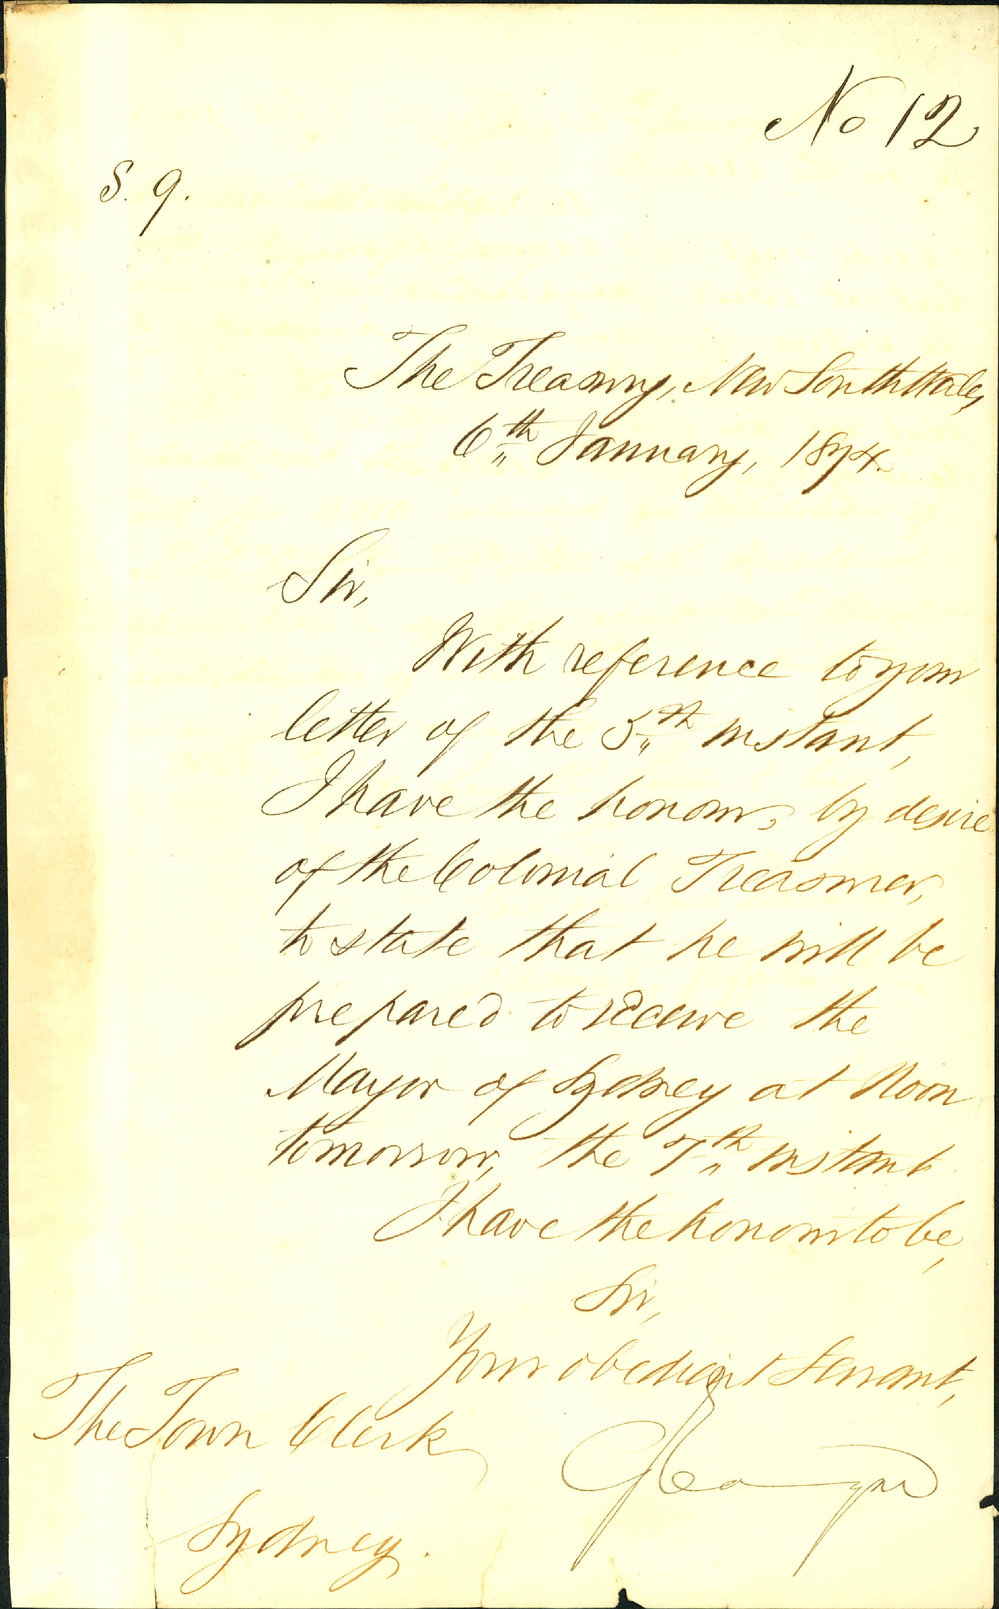 No 12
S. 9.
The Treasury, New South Wales,
6th January, 1874.
Sir,
With reference to your
letter of the 5th instant,
I have the honour, by desire
of the Colonial Treasurer,
to state that he will be
prepared to receive the
Mayor of Sydney at Noon
tomorrow, the 7th instant.
I have the honour to be,
Sir,
Your obedient Servant,
The Town Clerk
Sydney.